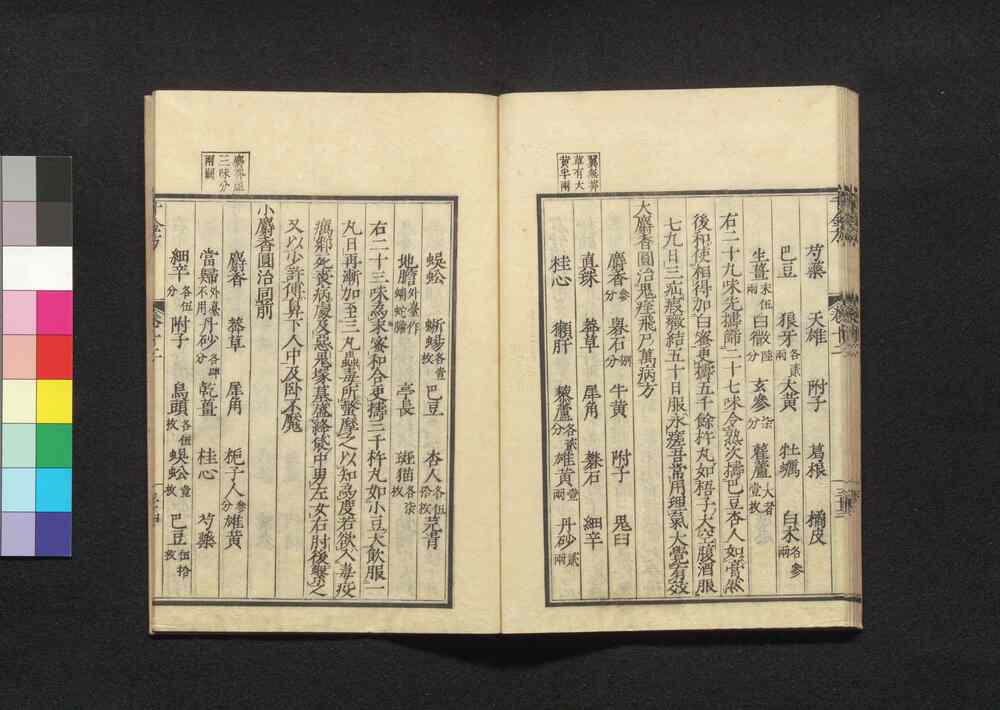 芍藥 天雄 附子 葛根 橘皮
巴豆 狼牙各貳兩 大黃 牡蠣 白朮各參兩
生薑末伍兩 白薇陸分 玄參柒分 藜蘆大者壹枚
右二十九味先擣篩二十七味令熟次擣巴豆杏人如膏然
後和使相得加白蜜更擣五千餘杵丸如梧子大空腹酒服
七丸日三疝瘕癥結五十日服永瘥吾常用理氣大覺有效
大麝香圓治鬼疰飛尸萬病方
麝香參分 礜石捌分 牛黃 附子 鬼臼
真珠 莽草 犀角 礜石 細辛
桂心 獺肝 藜蘆各貳分 雄黃壹兩 丹砂貳兩
蜈蚣 蜥蜴各壹枚 巴豆 杏人各伍拾枚 芫青
地膽外臺作蚺蛇膽 亭長 斑猫各柒枚
右二十三味為末蜜和合更擣三千杵丸如小豆大飲服一
丸日再漸加至三丸蟲毒所螫摩之以知為度若欲入毒疫
癘鄉死喪病處及惡鬼塚墓盛絳袋中男左女右肘後繫之
又以少許傅鼻下人中及臥不魘
小麝香圓治同前
麝香 莽草 犀角 梔子人參分 雄黃
當歸外臺不用 丹砂各肆分 乾薑 桂心 芍藥
細辛各伍分 附子 烏頭各伍枚 蜈蚣壹枚 巴豆伍拾枚